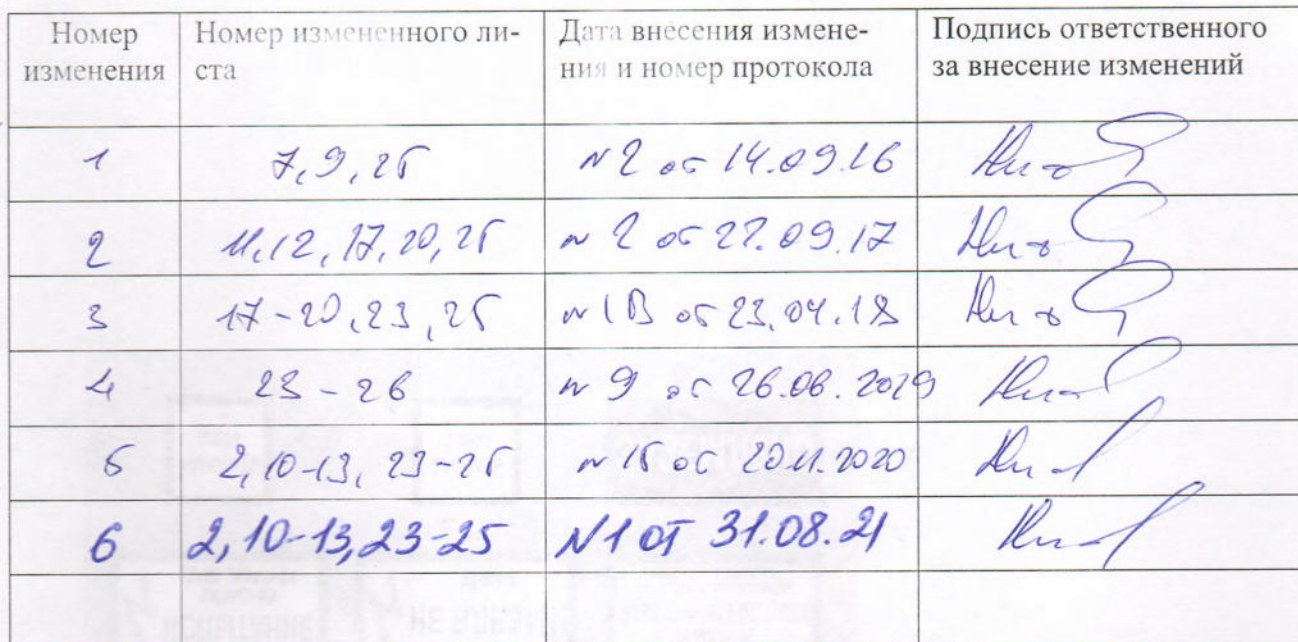 Номер изменения
Номер измененного ли-
ста
Дата внесения измене-
ния и номер протокола
Подпись ответственного
за внесение изменений
1 7,9,25 N2 от 14.09.16
2 11,12,17,20,25 N2 от 22.09.17
3 17-20,23,25 N13 от 23.04.18
4 23-26 N9 от 26.06.2019
5 2,10-13,23-25 N15 от 20.11.2020
6 2,10-13,23-25 N1 от 31.08.21